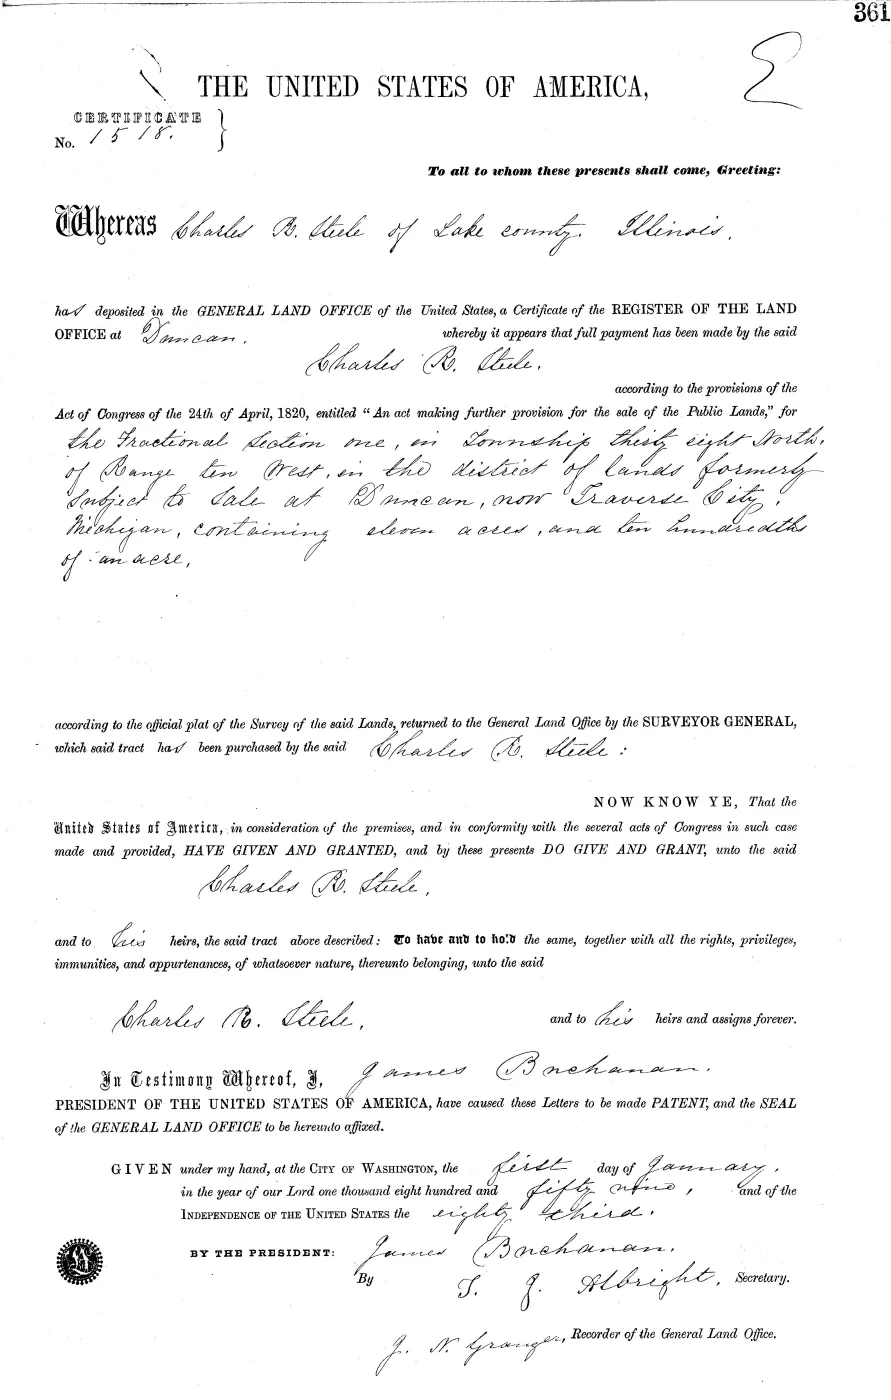 361
THE UNITED STATES OF AMERICA,
CERTIFICATE
No. 1518.
To all to whom these presents shall come, Greeting:
Whereas Charles R. Steele of Lake county. Illinois.
has deposited in the GENERAL LAND OFFICE of the United States, a Certificate of the REGISTER OF THE LAND
OFFICE at Duncan. whereby it appears that full payment has been made by the said
Charles R. Steele.
according to the provisions of the
Act of Congress of the 24th of April, 1820, entitled “An act making further provision for the sale of the Public Lands,” for
the Fractional Section one, in Township thirty eight North.
of Range ten West, in the district of lands formerly
subject to Sale at Duncan, now Traverse City.
Michigan, containing eleven acres, and ten hundredths
of an acre,
according to the official plat of the Survey of the said Lands, returned to the General Land Office by the SURVEYOR GENERAL,
which said tract has been purchased by the said Charles R. Steele:
NOW KNOW YE, That the
United States of America, in consideration of the premises, and in conformity with the several acts of Congress in such case
made and provided, HAVE GIVEN AND GRANTED, and by these presents DO GIVE AND GRANT, unto the said
Charles R. Steele,
and to his heirs, the said tract above described: To have and to hold the same, together with all the rights, privileges,
immunities, and appurtenances, of whatsoever nature, thereunto belonging, unto the said
Charles R. Steele, and to his heirs and assigns forever.
In Testimony Whereof, I, James Buchanan.
PRESIDENT OF THE UNITED STATES OF AMERICA, have caused these Letters to be made PATENT, and the SEAL
of the GENERAL LAND OFFICE to be hereunto affixed.
GIVEN under my hand, at the CITY OF WASHINGTON, the first day of January.
in the year of our Lord one thousand eight hundred and fifty nine, and of the
INDEPENDENCE OF THE UNITED STATES the eighty third.
BY THE PRESIDENT: James Buchanan.
By T. J. Albright, Secretary.
J. N. Granger, Recorder of the General Land Office.